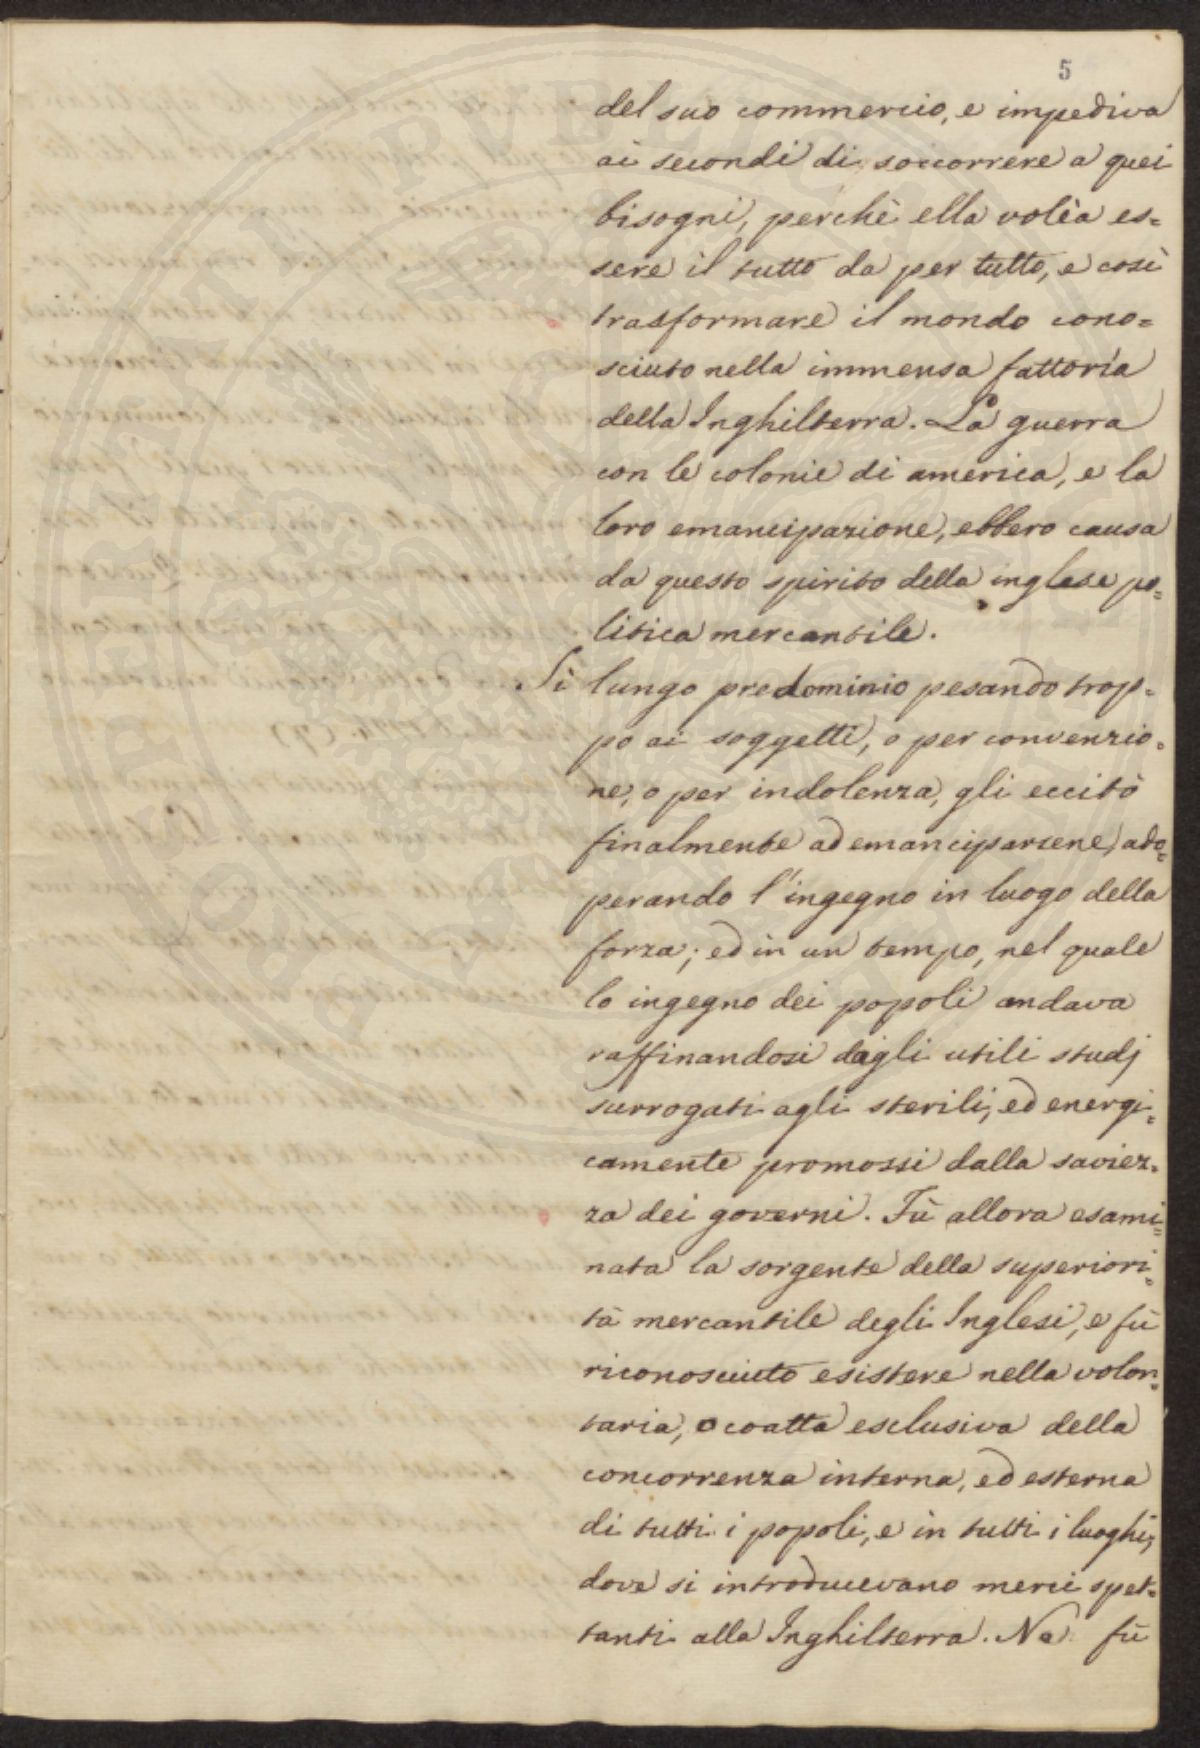 5
del suo commercio, e impediva
ai secondi di soccorrere a quei
bisogni, perchè ella volèa es=
sere il tutto da per tutto, e così
trasformare il mondo cono=
sciuto nella immensa fattorìa
della Inghilterra. La guerra
con le colonie di america, e la
loro emancipazione, ebbero causa
da questo spirito della inglese po=
litica mercantile.
Sì lungo predominio pesando trop=
po ai soggetti, o per convenzio=
ne, o per indolenza, gli eccitò
finalmente ad emanciparsene, ado=
perando l'ingegno in luogo della
forza; ed in un tempo, nel quale
lo ingegno dei popoli andava
raffinandosi dagli utili studj
surrogati agli sterili, ed energi=
camente promossi dalla saviez=
za dei governi. Fù allora esami=
nata la sorgente della superiori=
tà mercantile degli Inglesi, e fù
riconosciuto esistere nella volon=
taria, o coatta esclusiva della
concorrenza interna, ed esterna
di tutti i popoli, e in tutti i luoghi,
dove si introducevano merci spet=
tanti alla Inghilterra. Ne fù